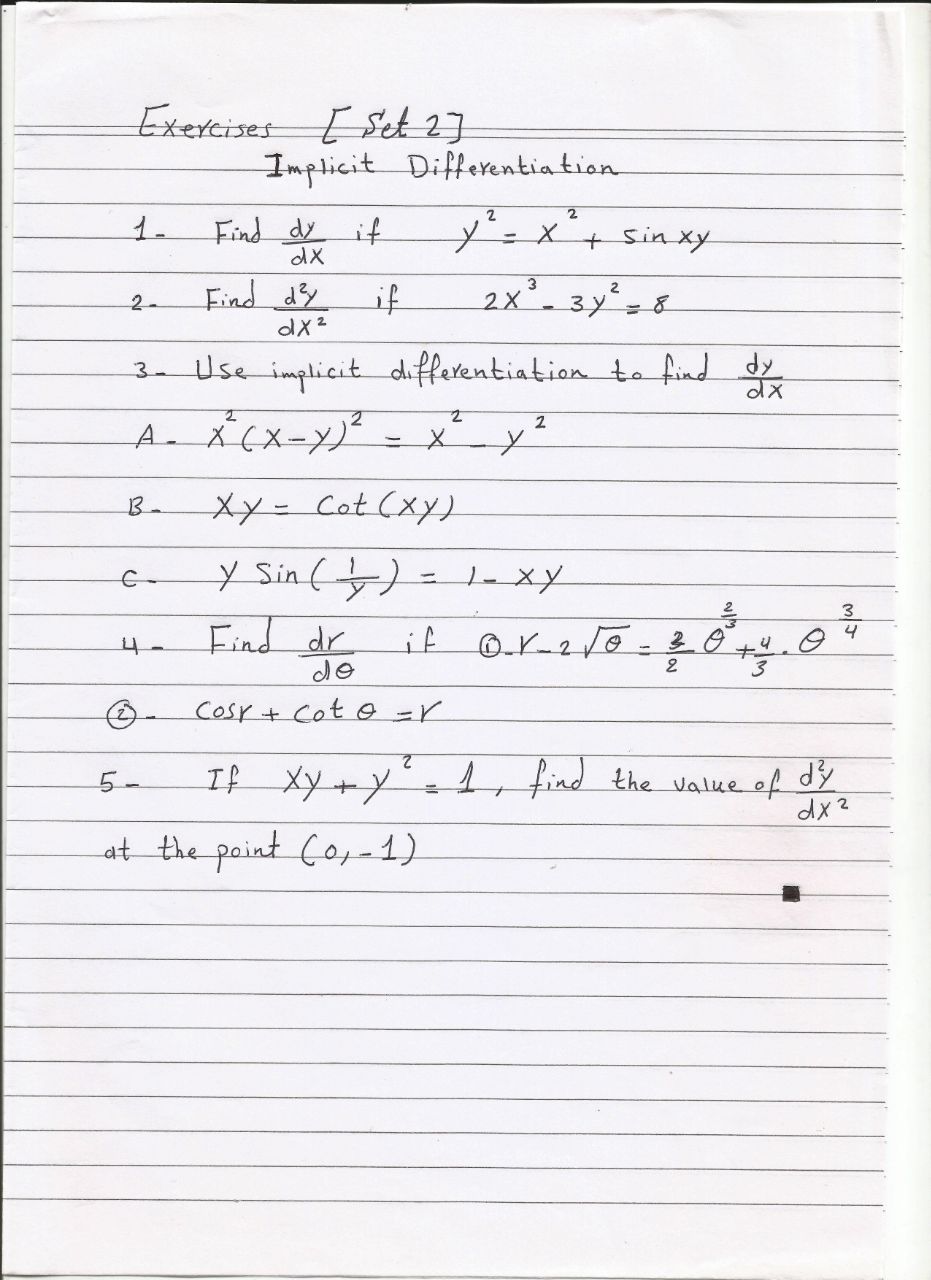 Exercises [ Set 2 ]
Implicit Differentiation
1- Find dy/dx if y² = x² + sin xy
2- Find d²y/dx² if 2x³ - 3y² = 8
3- Use implicit differentiation to find dy/dx
A- x²(x-y)² = x² - y²
B- xy = Cot(xy)
C- y Sin(1/y) = 1 - xy
4- Find dr/dθ if ①- r - 2√θ = 3/2 θ^(2/3) + 4/3 . θ^(3/4)
②- cosr + cot θ = r
5- If xy + y² = 1, find the value of d²y/dx²
at the point (0,-1)